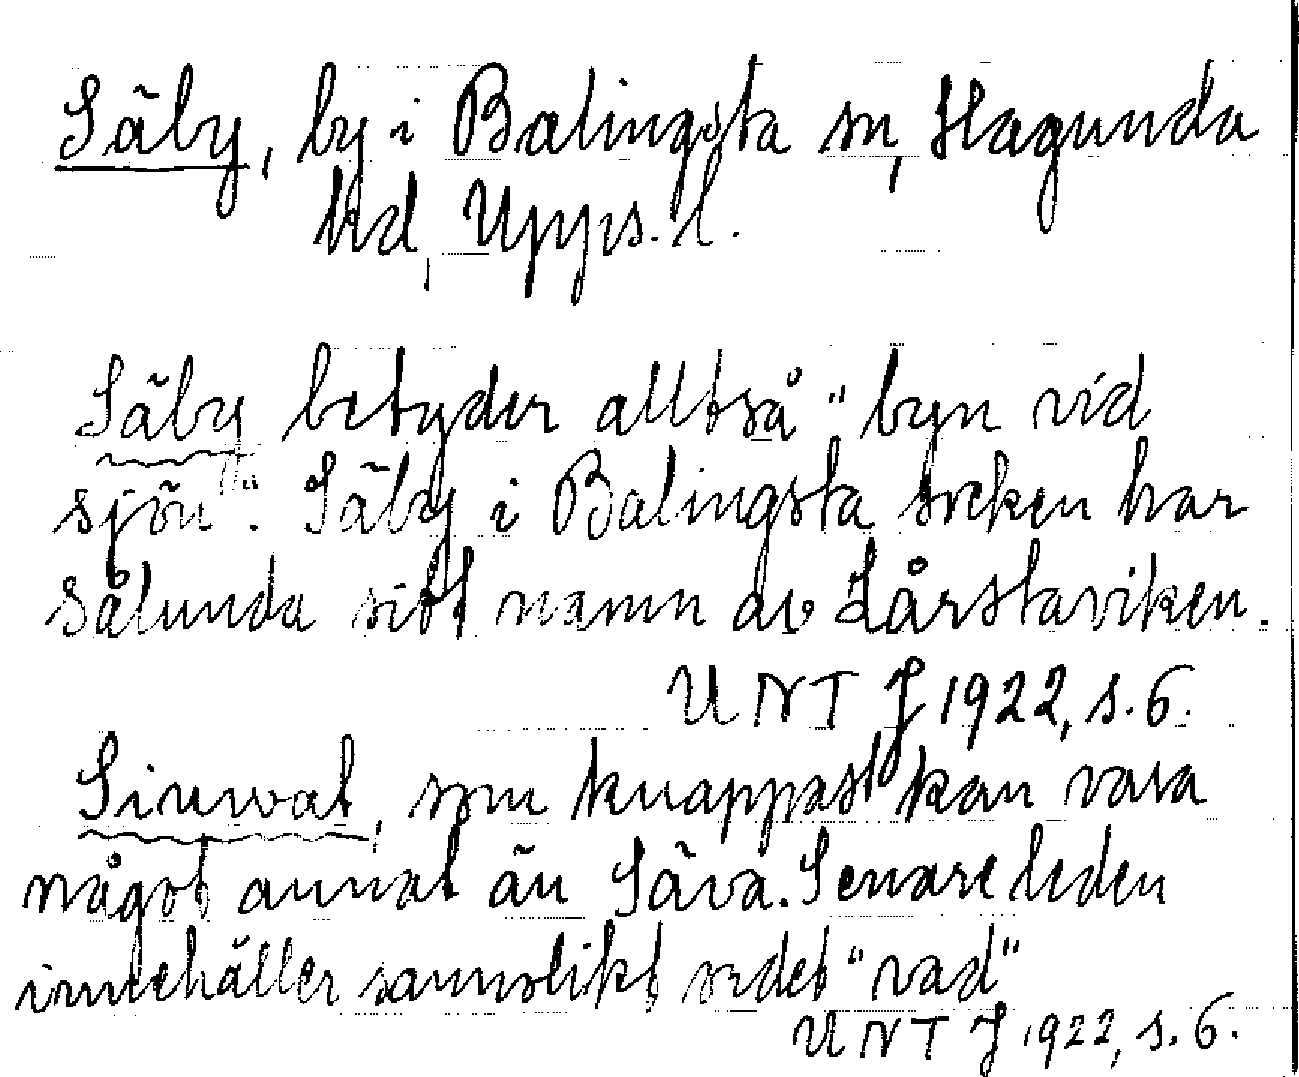 Säby, by i Balingsta sn, Hagunda
hd, Upps. l.
Säby betyder alltså "byn vid
sjön". Säby i Balingsta socken har
sålunda sitt namn av Lårstaviken.
UNT J 1922, s. 6.
Sinwat, som knappast kan vara
något annat än Säva. Senare leden
innehåller sannolikt ordet "vad"
UNT J 1922, s. 6.